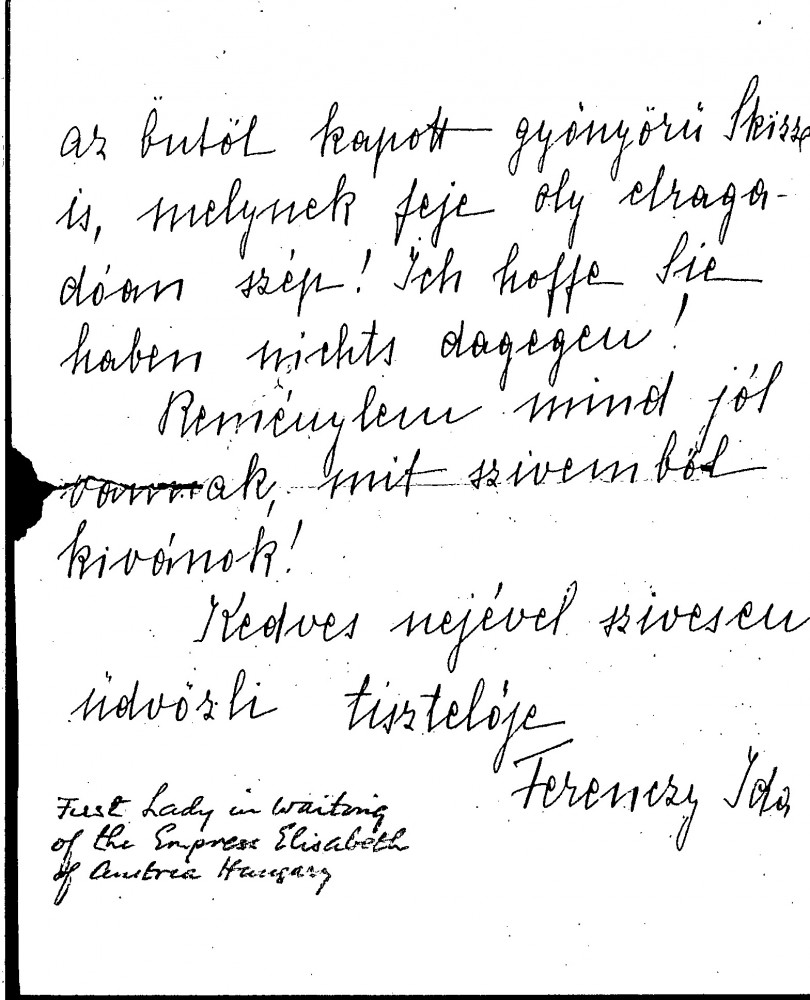 az öntől kapott gyönyörü Skizze
is, melynek feje oly elraga-
dóan szép! Ich hoffe Sie
haben nichts dagegen!
Reménylem mind jól
vannak, mit szivemből
kivánok!
Kedves nejével szivesen
üdvözli tisztelője
Ferenczy Ida
First Lady in Waiting
of the Empress Elisabeth
of Austria Hungary